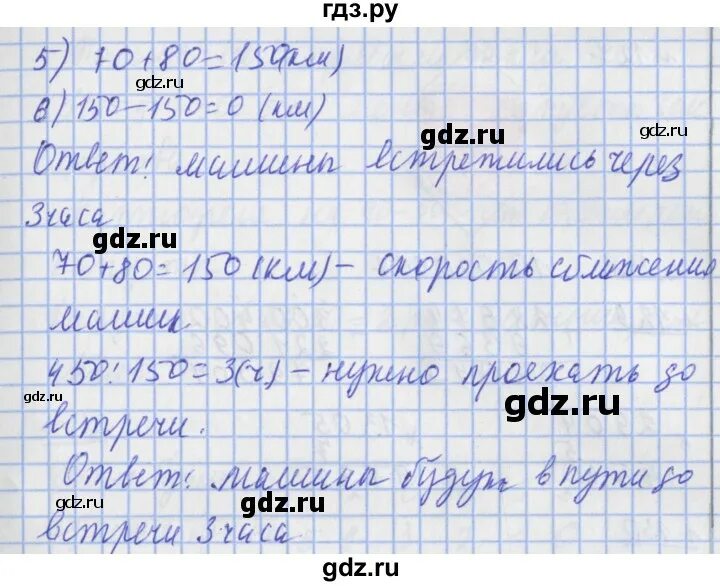 гдз.ру
5) 70+80=150(км)
6) 150-150=0 (км)
Ответ: машины встретились через
3 часа
70+80=150(км) - скорость сближения
машин.
450:150=3(ч) - нужно проехать до
встречи.
Ответ: машины будут в пути до
встречи 3 часа
gdz.ru
gdz.ru
gdz.ru
gdz.ru
gdz.ru
gdz.ru
gdz.ru
gdz.ru
гдз.ру